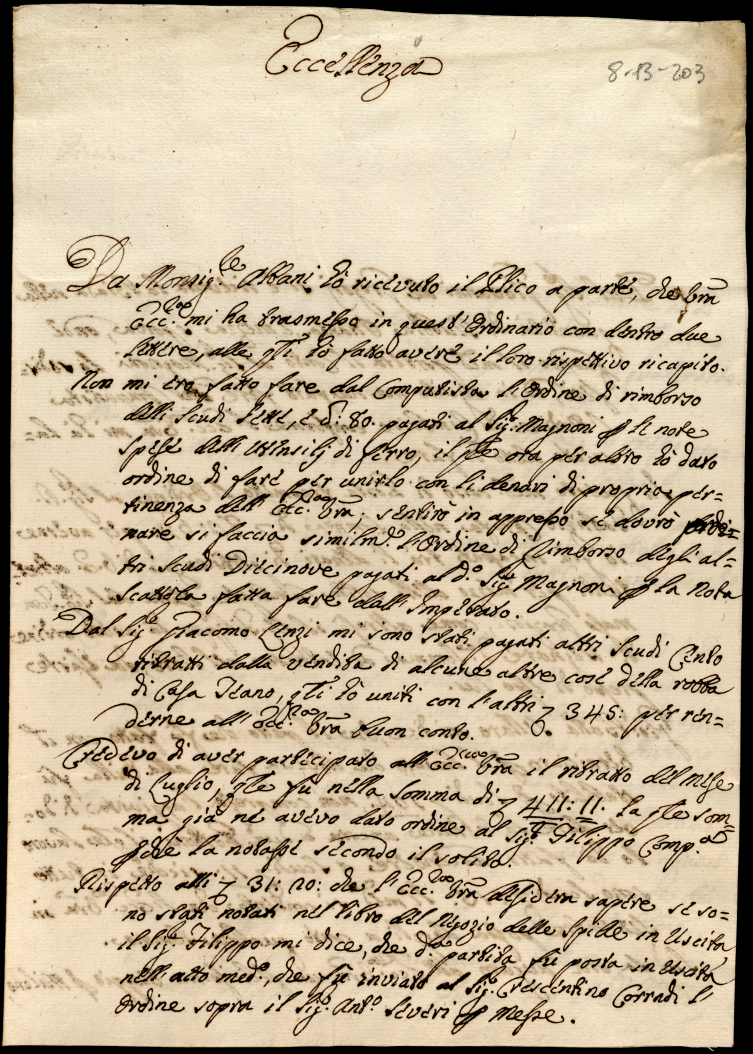 Eccellenza
8-13-203
Da Monsig.re Albani hò ricevuto il Plico a parte, che Vra
Ecc.za mi ha trasmesso in quest'Ordinario con dentro due
lettere, alle q.li hò fatto avere il loro rispettivo ricapito.
Non mi ero fatto fare dal Computista l'Ordine di rimborso
delli Scudi sette, e b: 80. pagati al Sig. Magnoni p le note
spese delli Utensilj di ferro, il q.le ora per altro hò dato
ordine di fare per unirlo con li denari di propria per=
tinenza dell'Ecc.za Vra; sentirò in appresso se dovrò ordi=
nare si faccia similm.e l'Ordine di rimborso degli al=
tri Scudi Diecinove pagati al d.o Sig. Magnoni p la nota
Scattola fatta fare dall'Imperato.
Dal Sig. Giacomo Lenzi mi sono stati pagati altri Scudi Cento
ritratti dalla vendita di alcune altre cose della robba
di Casa Teano, q.li hò uniti con l'altri 345: per ren=
derne all'Ecc.za Vra buon conto.
Credevo di aver participato all'Ecc.za Vra il ritratto del mese
di Luglio, q.le fu nella somma di 411:11: la q.le som=
ma già ne avevo dato ordine al Sig.r Filippo Comp.a
p che la notasse secondo il solito.
Rispetto alli 31:20: che l'Ecc.za Vra desidera sapere se so=
no stati notati nel libro del Negozio delle Spille in Uscita,
il Sig. Filippo mi dice, che d.a partita fu posta in Uscita
nell'atto med.o, che fu inviato al Sig. Crescentino Corradi l'
Ordine sopra il Sig. Ant.o Severi p Messe.